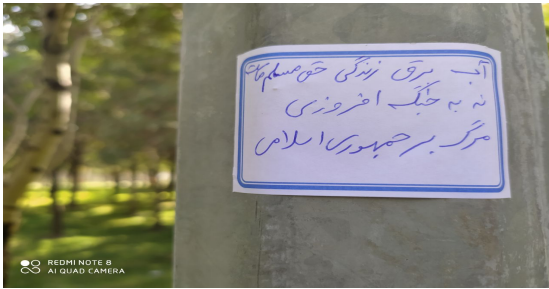 آب برق زندگی حق مسلم مات
نه به جنگ افروزی
مرگ بر جمهوری اسلامی
REDMI NOTE 8
AI QUAD CAMERA